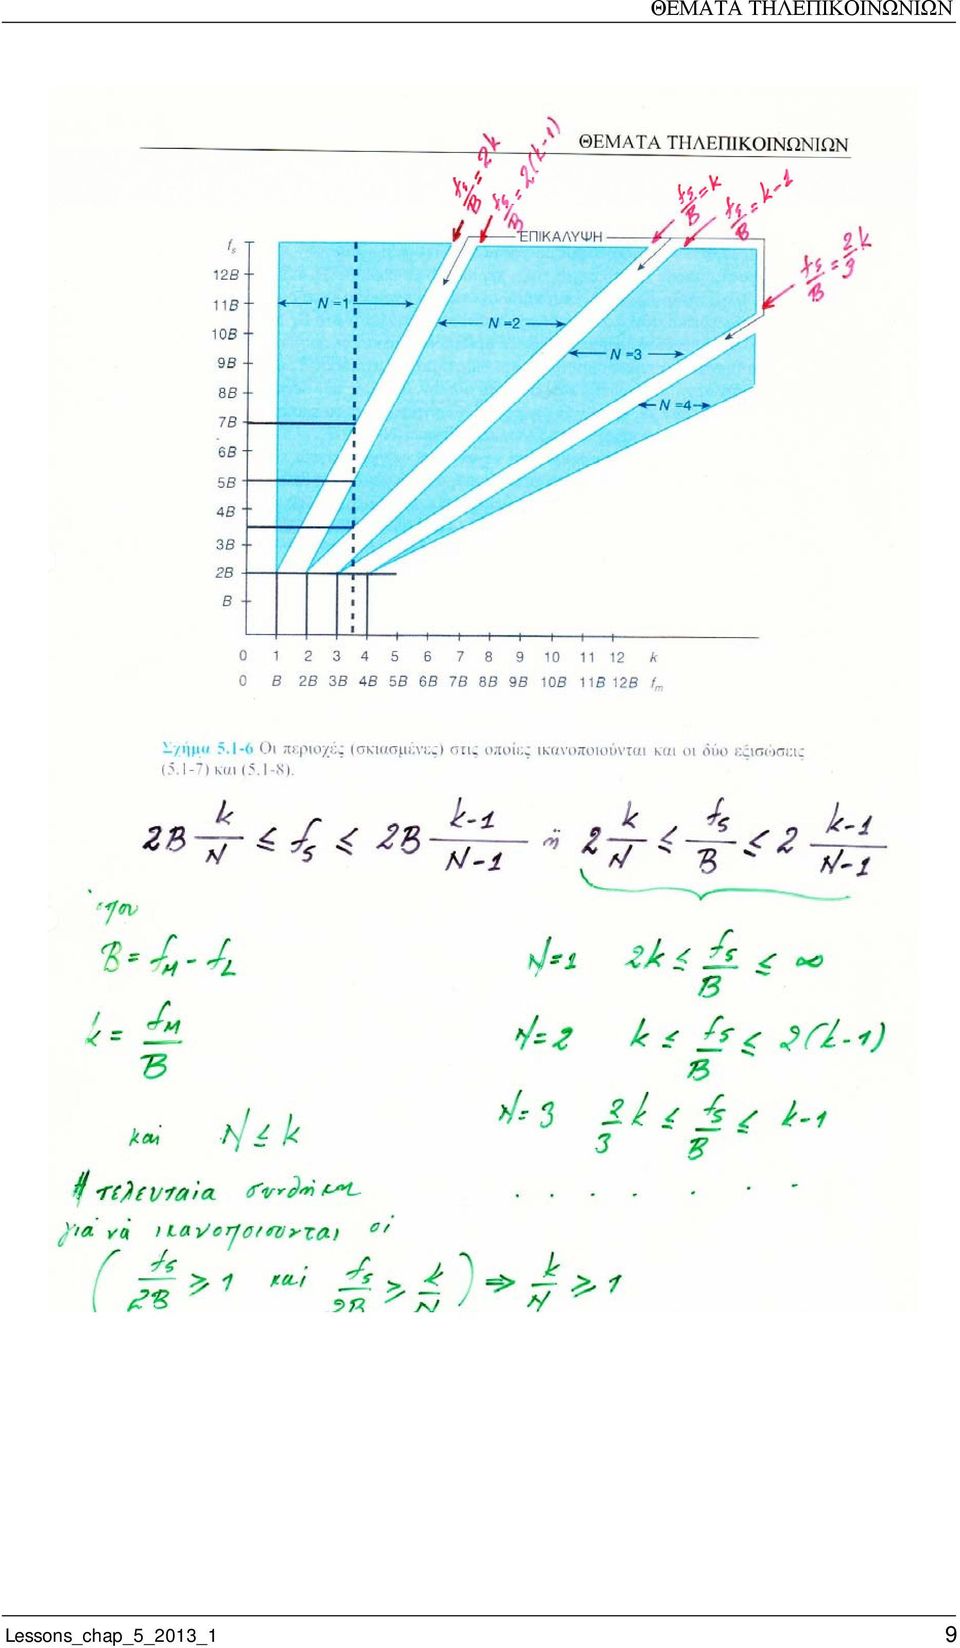 ΘΕΜΑΤΑ ΤΗΛΕΠΙΚΟΙΝΩΝΙΩΝ
ΘΕΜΑΤΑ ΤΗΛΕΠΙΚΟΙΝΩΝΙΩΝ
fs/B = 2k
fs/B = 2(k-1)
fs/B = k
fs/B = k-1
fs/B = 2/3 k
ΕΠΙΚΑΛΥΨΗ
fs
12B
11B
10B
9B
8B
7B
6B
5B
4B
3B
2B
B
N =1
N =2
N =3
N =4
0 1 2 3 4 5 6 7 8 9 10 11 12 k
0 B 2B 3B 4B 5B 6B 7B 8B 9B 10B 11B 12B fm
Σχήμα 5.1-6 Οι περιοχές (σκιασμένες) στις οποίες ικανοποιούνται και οι δύο εξισώσεις
(5.1-7) και (5.1-8).
2B k/N ≤ fs ≤ 2B (k-1)/(N-1) ή 2 k/N ≤ fs/B ≤ 2 (k-1)/(N-1)
όπου
B = fM - fL
N=1 2k ≤ fs/B ≤ ∞
k = fM/B
N=2 k ≤ fs/B ≤ 2(k-1)
και N ≤ k
N=3 2/3 k ≤ fs/B ≤ k-1
Η τελευταία συνθήκη
. . . . . . . .
γιά νά ικανοποιούνται οι
( fs/2B ≥ 1 και fs/2B ≥ k/N ) ⇒ k/N ≥ 1
Lessons_chap_5_2013_1 9